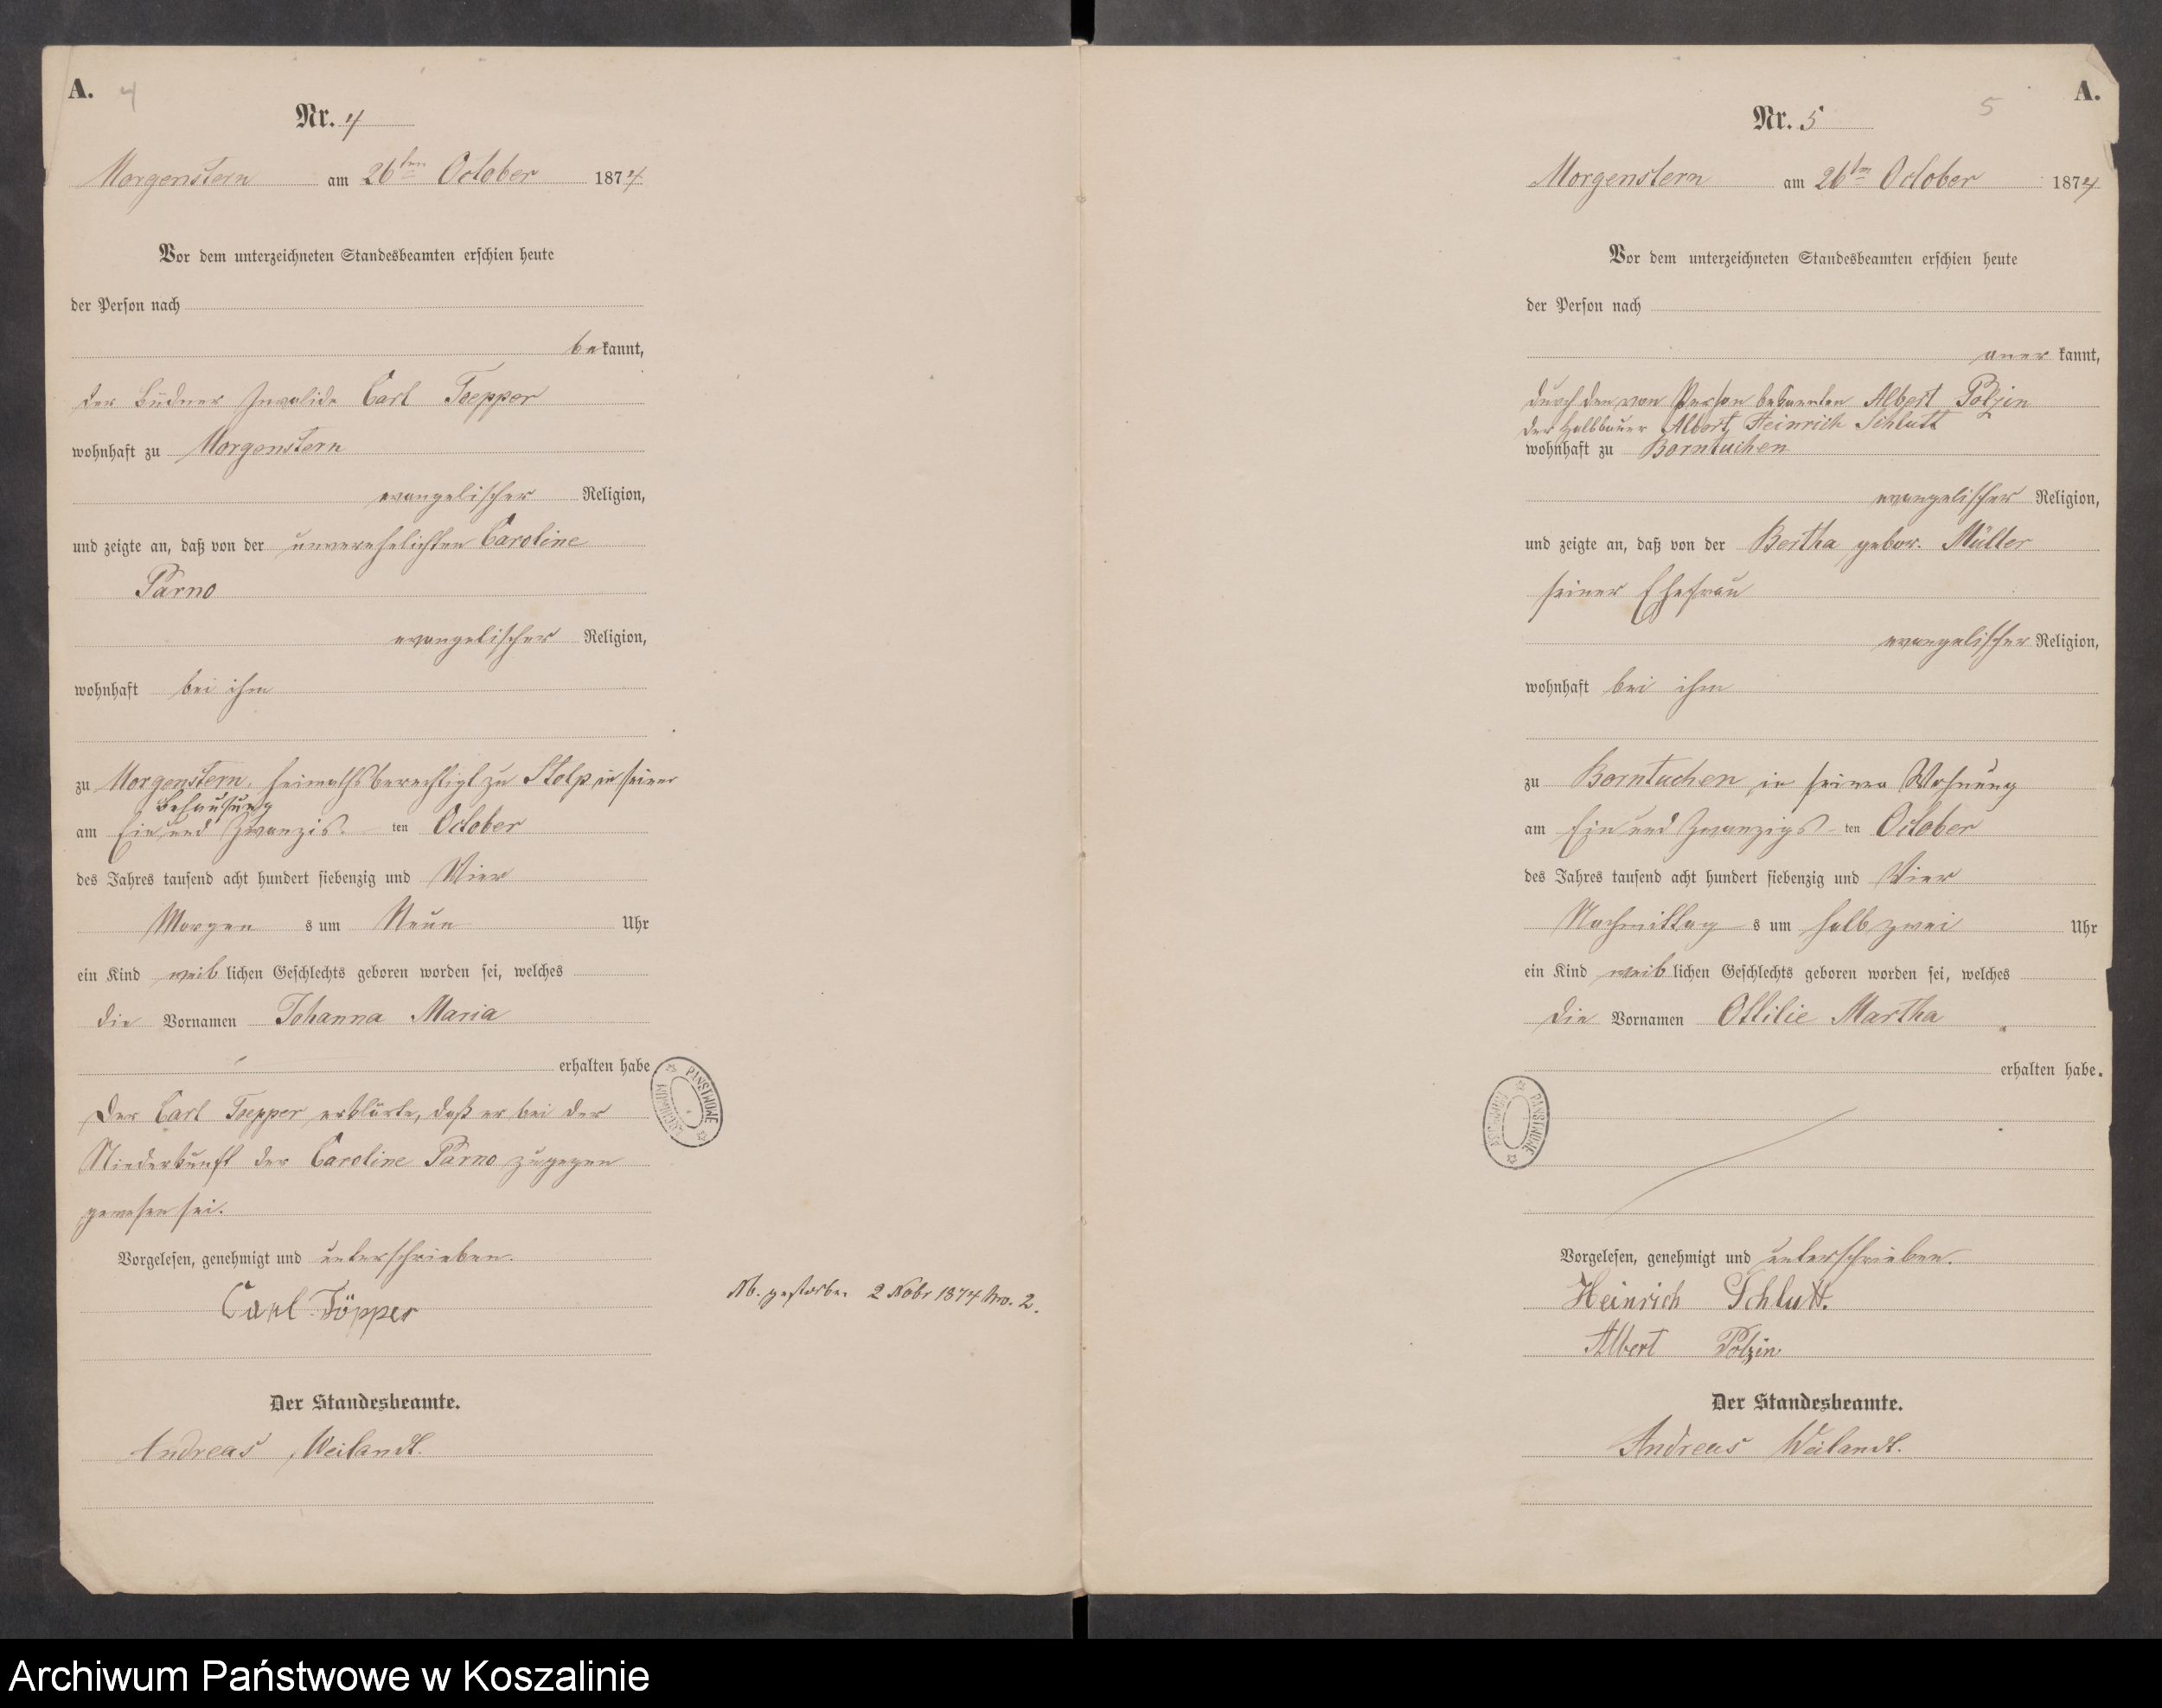 A. 4
Nr. 4
Morgenstern am 26ten October 1874
Vor dem unterzeichneten Standesbeamten erschien heute
der Person nach
bekannt,
der Büdner Invalide Carl Toepper
wohnhaft zu Morgenstern
evangelischer Religion,
und zeigte an, daß von der unverehelichten Caroline
Parno
evangelischer Religion,
wohnhaft bei ihm
zu Morgenstern, heimathsberechtigt zu Stolp, in seiner
Behausung
am Ein und Zwanzigs ten October
des Jahres tausend acht hundert siebenzig und Vier
Morgen s um Neun Uhr
ein Kind weiblichen Geschlechts geboren worden sei, welches
die Vornamen Johanna Maria
erhalten habe
Der Carl Toepper erklärte, daß er bei der
Niederkunft der Caroline Parno zugegen
gewesen sei.
Vorgelesen, genehmigt und unterschrieben.
Carl Töpper
Der Standesbeamte.
Andreas Weilandt.
Nb. gestorben 2 Nobr 1874 No. 2.
PAŃSTWOWE
A.
5
Nr. 5
Morgenstern am 26ten October 1874
Vor dem unterzeichneten Standesbeamten erschien heute
der Person nach
aner kannt,
durch den von Person bekannten Albert Polzin
der Halbbauer Albert Heinrich Schlutt
wohnhaft zu Borntuchen
evangelischer Religion,
und zeigte an, daß von der Bertha gebor. Müller
seiner Ehefrau
evangelischer Religion,
wohnhaft bei ihm
zu Borntuchen, in seiner Wohnung
am Ein und Zwanzigs ten October
des Jahres tausend acht hundert siebenzig und Vier
Nachmittag s um halb zwei Uhr
ein Kind weiblichen Geschlechts geboren worden sei, welches
die Vornamen Ottilie Martha
erhalten habe.
PAŃSTWOWE
Vorgelesen, genehmigt und unterschrieben.
Heinrich Schlutt.
Albert Polzin
Der Standesbeamte.
Andreas Weilandt.
Archiwum Państwowe w Koszalinie